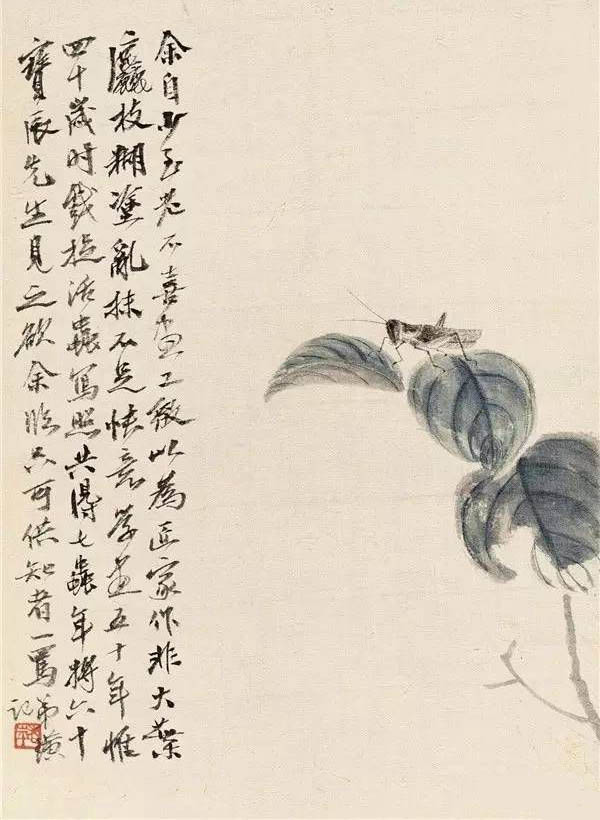 余自少至老不喜画工致以為匠家作非大葉
䴡枝糊塗亂抺不足快意學畫五十年惟
四十歲时戲捉活蟲寫照共得七蟲年將六十
寶辰先生見之欲余臨只可供知者一罵弟璜
記